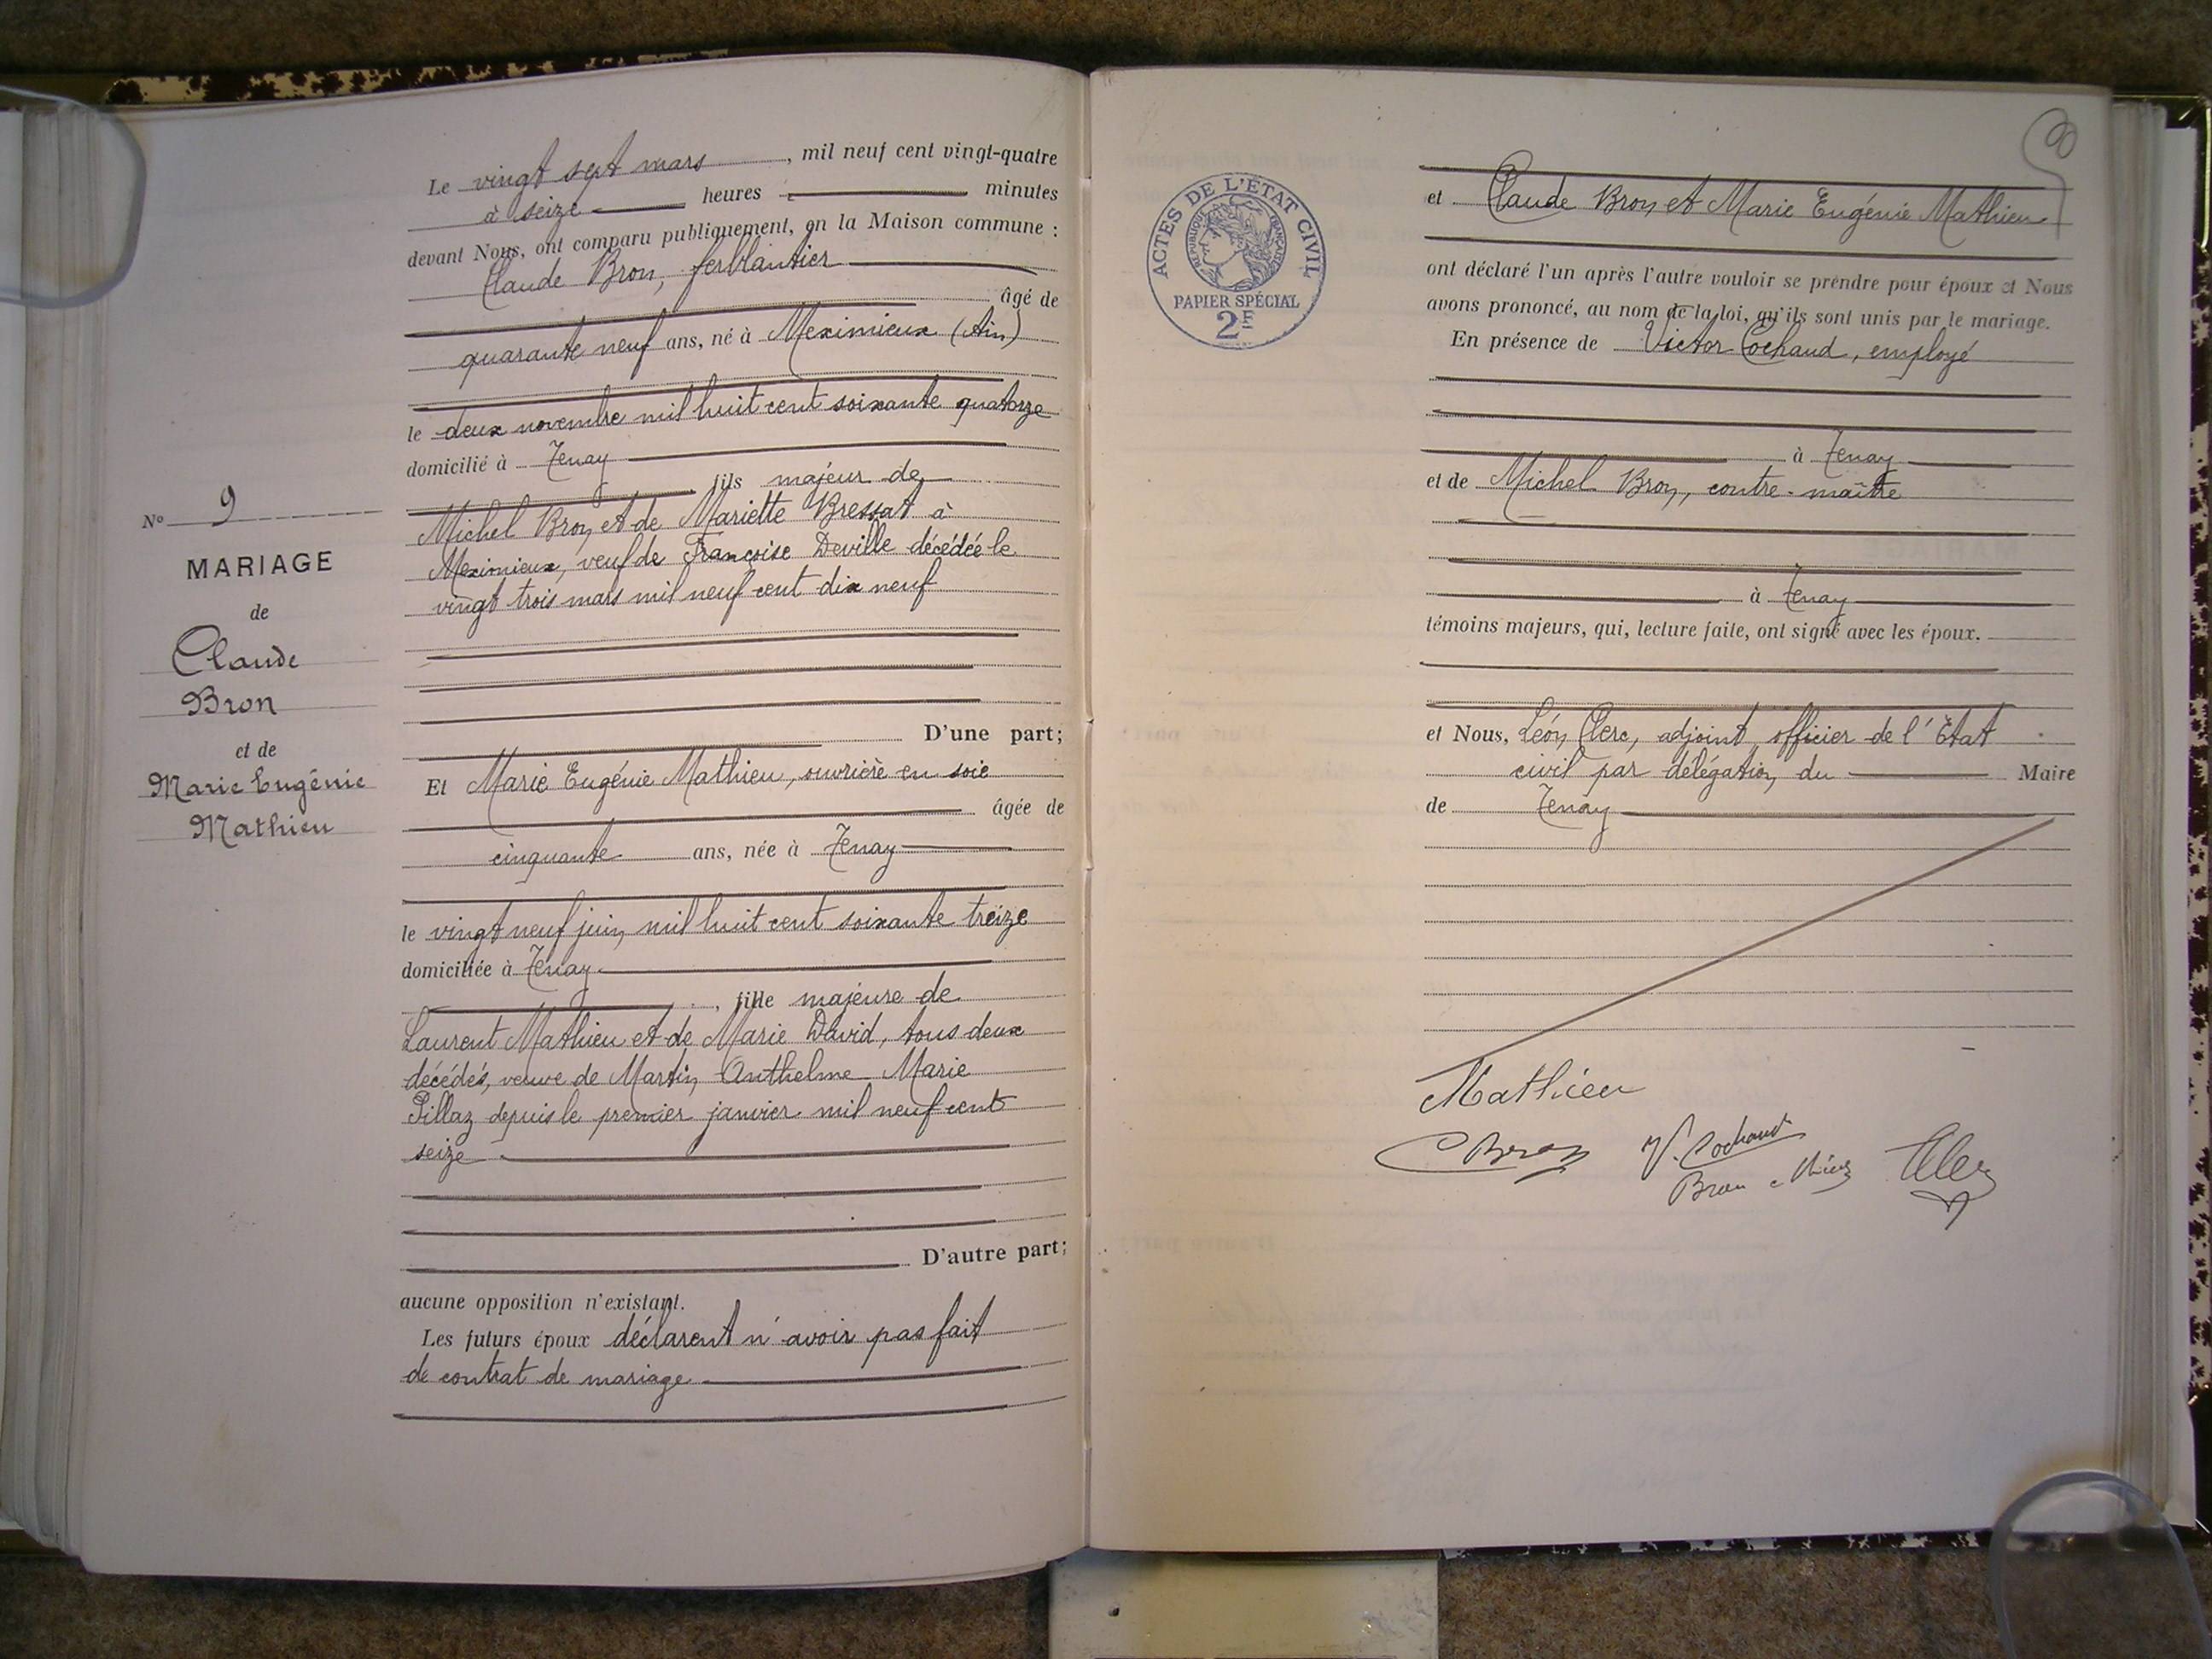 Le vingt sept mars, mil neuf cent vingt-quatre
à seize heures minutes
devant Nous, ont comparu publiquement, en la Maison commune :
Claude Bron, ferblantier
âgé de
quarante neuf ans, né à Meximieux (Ain)
le deux novembre mil huit cent soixante quatorze
domicilié à Tenay
fils majeur de
Michel Bron et de Mariette Bressat à
Meximieux, veuf de Françoise Deville décédée le
vingt trois mars mil neuf cent dix neuf
N° 9
MARIAGE
de
Claude
Bron
et de
Marie Eugénie
Mathieu
D'une part;
Et Marie Eugénie Mathieu, ouvrière en soie
âgée de
cinquante ans, née à Tenay
le vingt neuf juin mil huit cent soixante treize
domiciliée à Tenay
, fille majeure de
Laurent Mathieu et de Marie David, tous deux
décédés, veuve de Martin Anthelme Marie
Pillaz depuis le premier janvier mil neuf cent
seize.
D'autre part;
aucune opposition n'existant.
Les futurs époux déclarent n'avoir pas fait
de contrat de mariage
ACTES DE L'ÉTAT CIVIL
RÉPUBLIQUE FRANÇAISE
PAPIER SPÉCIAL
2F
et Claude Bron et Marie Eugénie Mathieu
ont déclaré l'un après l'autre vouloir se prendre pour époux et Nous
avons prononcé, au nom de la loi, qu'ils sont unis par le mariage.
En présence de Victor Cochaud, employé
à Tenay
et de Michel Bron, contre-maître
à Tenay
témoins majeurs, qui, lecture faite, ont signé avec les époux.
et Nous, Léon Clerc, adjoint officier de l'État
civil par délégation du Maire
de Tenay
Mathieu
C Bron V. Cochaud
Bron